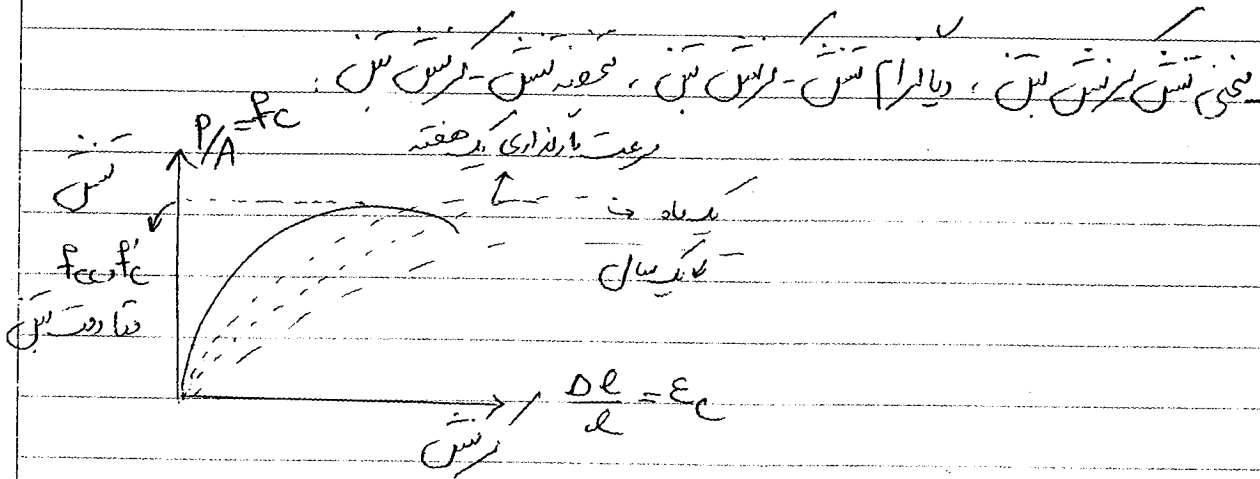 منحنی تنش کرنش بتن ، دیاگرام تنش - کرنش بتن ، نحوه تنش - کرنش بتن :
P/A = fc
تنش
سرعت بارگذاری یک هفته
یک ماه
یک سال
fcc و f'c
مقاومت بتن
Δl/l = εc
کرنش